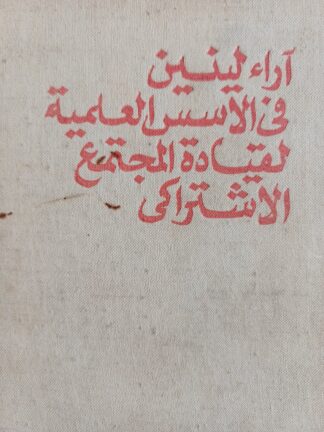 آراء لينين
فى الأسس العلمية
لقيادة المجتمع
الاشتراكى